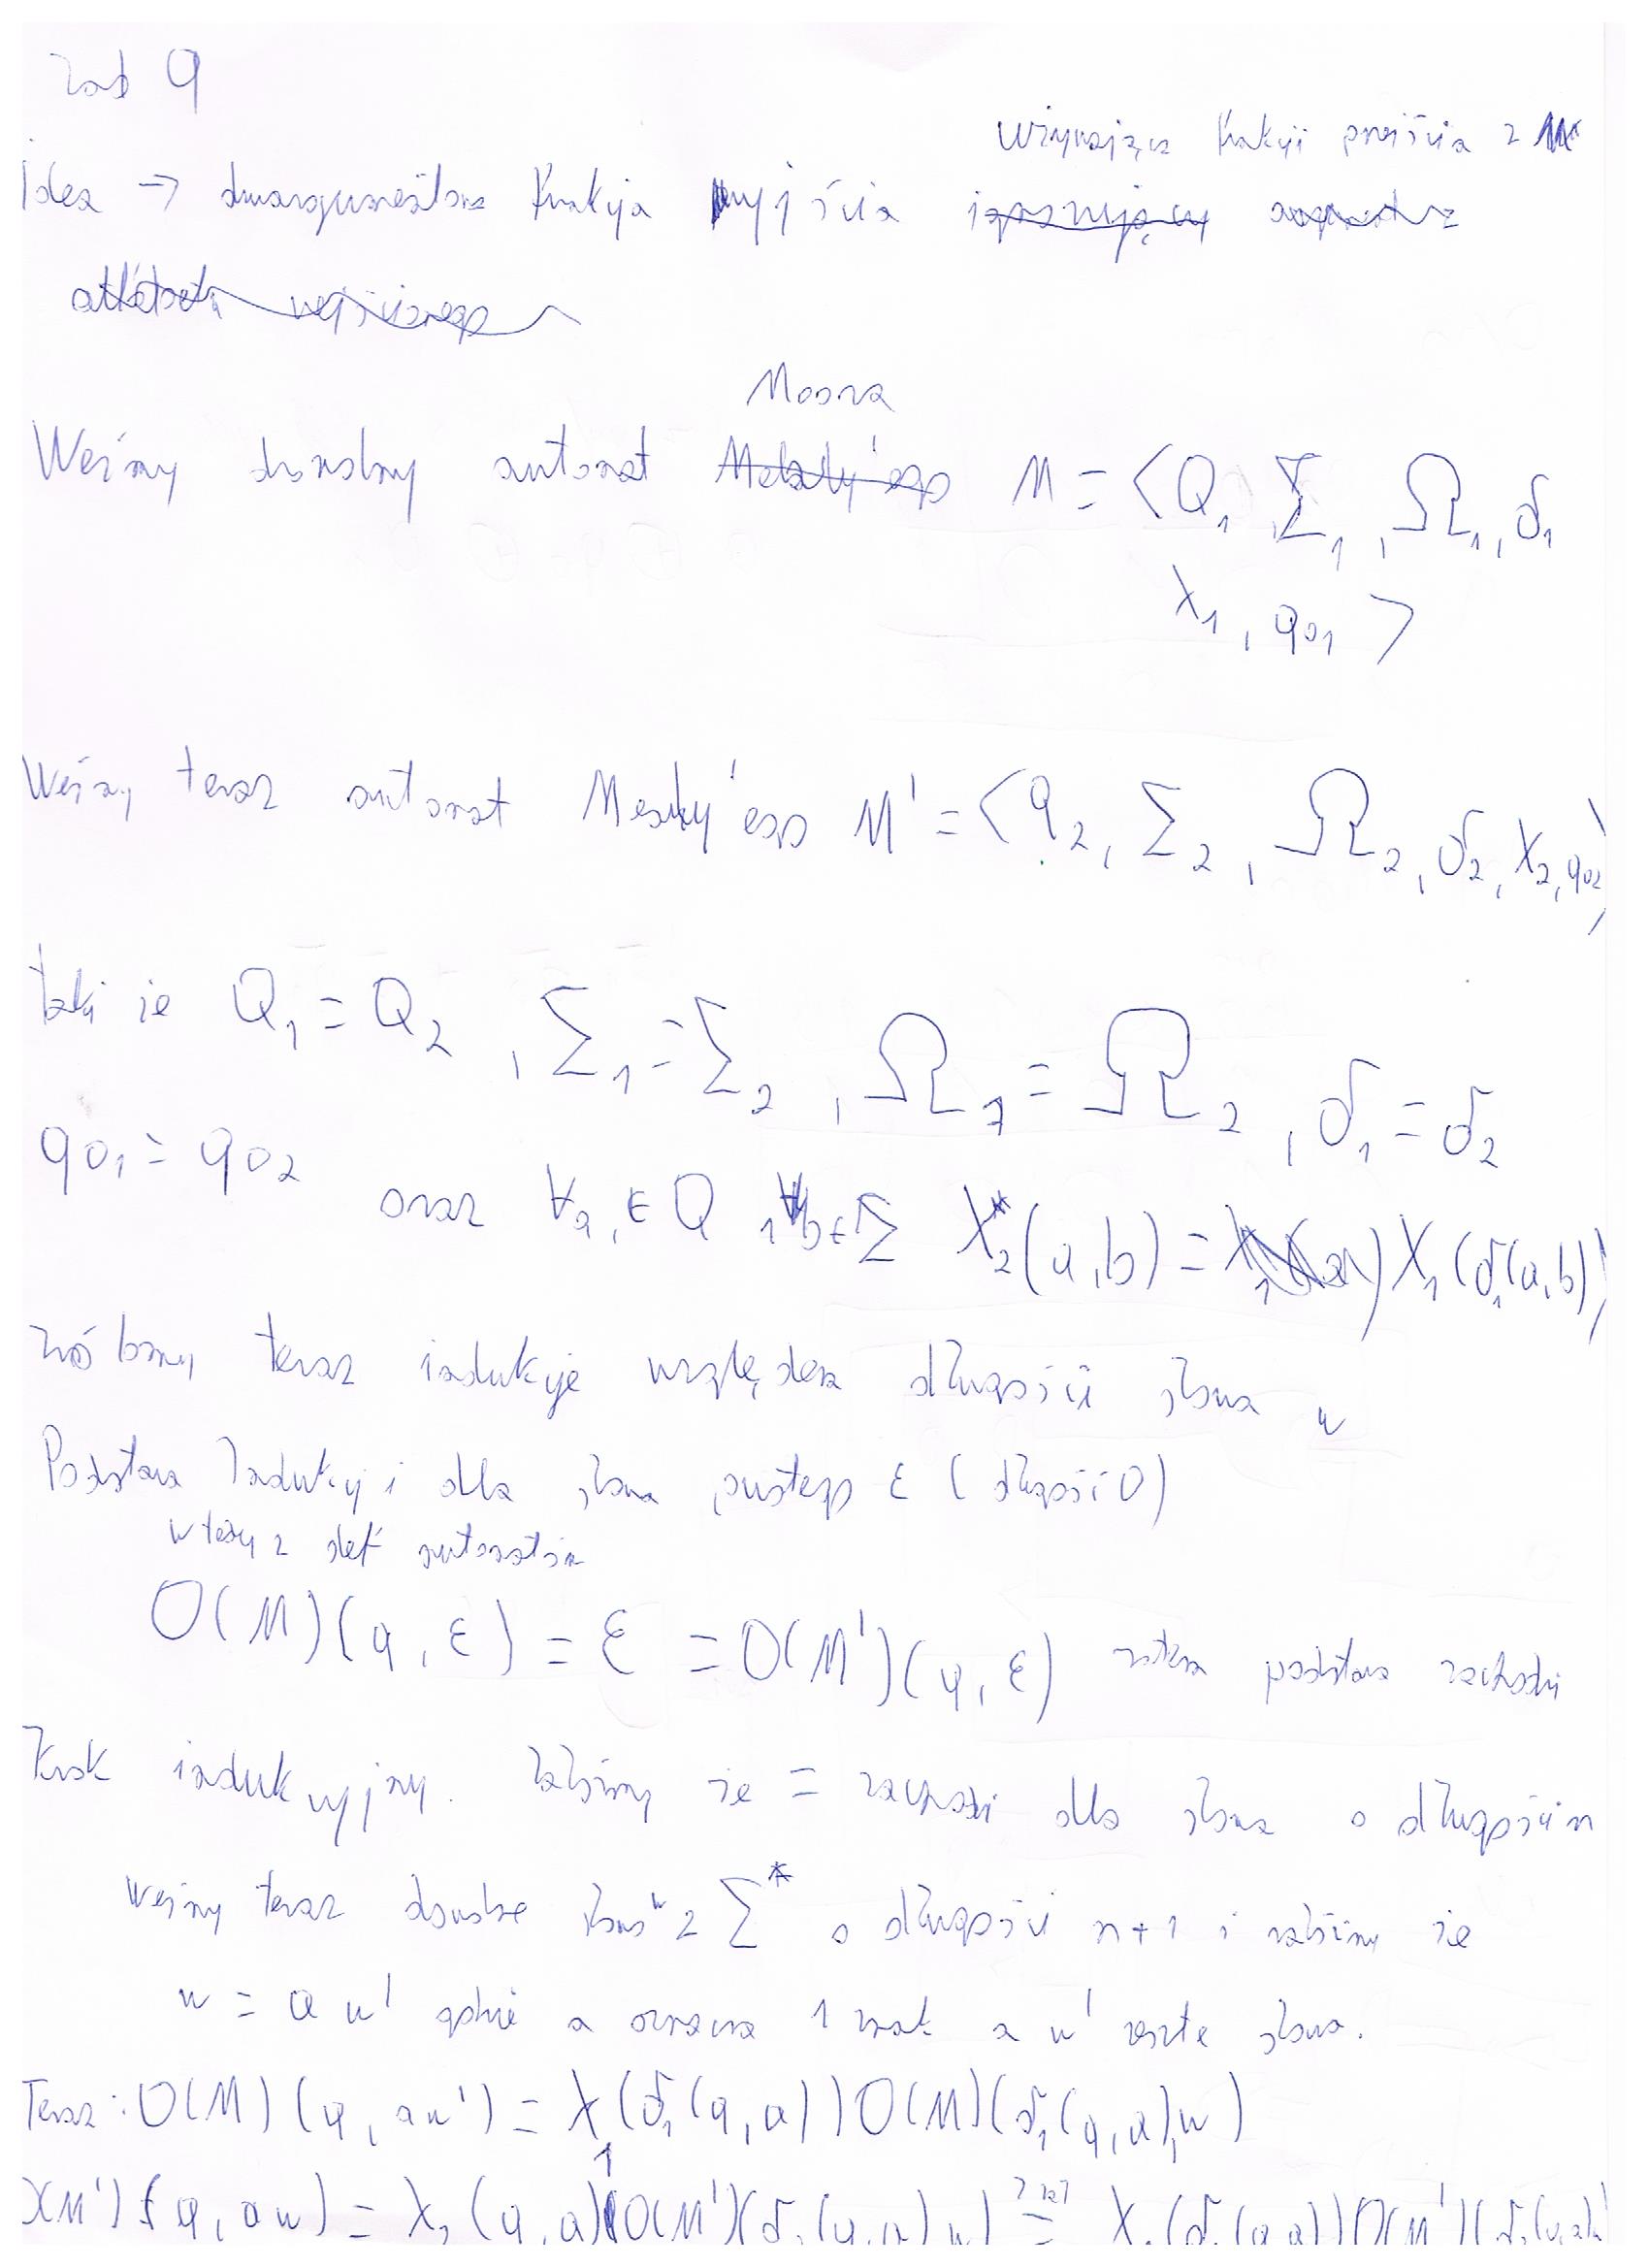 Zad 9
używająca funkcji przejścia z M
Idea → dwuargumentowa funkcja wyjścia
Moora
Weźmy dowolny automat Mealy'ego M = <Q₁, Σ₁, Ω₁, δ₁
λ₁, q₀₁ >
Weźmy teraz automat Mealy'ego M' = <q₂, Σ₂, Ω₂, δ₂, λ₂, q₀₂>
taki że Q₁ = Q₂, Σ₁ = Σ₂, Ω₁ = Ω₂, δ₁ = δ₂
q₀₁ = q₀₂ oraz ∀a, ∈ Q, ∀b ∈ Σ λ₂*(a,b) = λ₁(δ₁(a,b))
Zróbmy teraz indukcje względem długości słowa w
Podstawa Indukcji dla słowa pustego ε (długość 0)
wtedy z def automatów
O(M)(q, ε) = ε = O(M')(q, ε) zatem podstawa zachodzi
Krok indukcyjny. Załóżmy że = zachodzi dla słowa o długości n
Weźmy teraz dowolne słowo w z Σ* o długości n+1 i załóżmy że
w = a w' gdzie a oznacza 1 znak a w' resztę słowa.
Teraz: O(M)(q, aw') = λ₁(δ₁(q,a)) O(M)(δ₁(q,a),w)
O(M')(q, aw) = λ₂(q,a) O(M')(δ₂(q,a) w) = λ₁(δ₁(q,a)) O(M')(δ₂(q,a)w